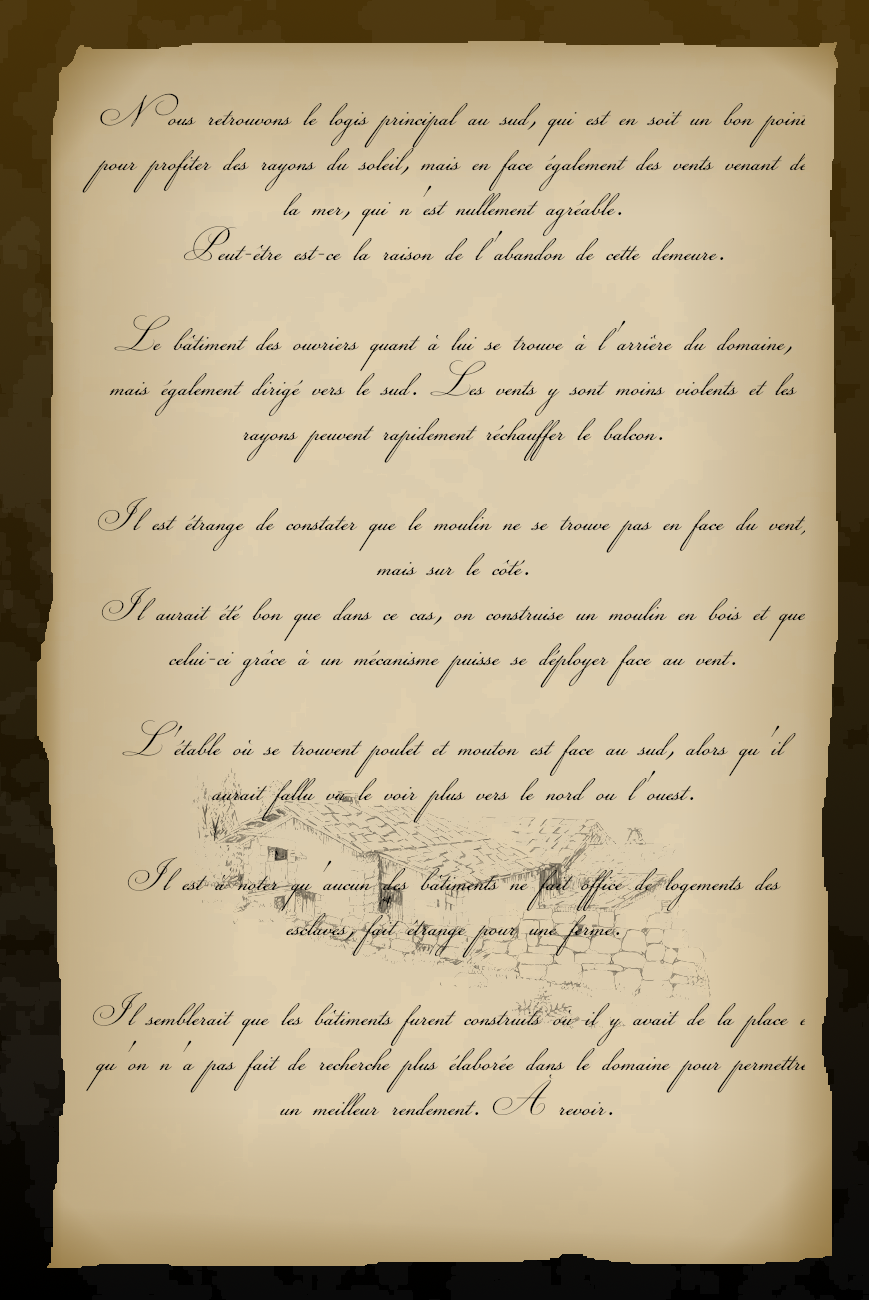 Nous retrouvons le logis principal au sud, qui est en soit un bon point
pour profiter des rayons du soleil, mais en face également des vents venant de
la mer, qui n'est nullement agréable.
Peut-être est-ce la raison de l'abandon de cette demeure.
Le bâtiment des ouvriers quant à lui se trouve à l'arrière du domaine,
mais également dirigé vers le sud. Les vents y sont moins violents et les
rayons peuvent rapidement réchauffer le balcon.
Il est étrange de constater que le moulin ne se trouve pas en face du vent,
mais sur le côté.
Il aurait été bon que dans ce cas, on construise un moulin en bois et que
celui-ci grâce à un mécanisme puisse se déployer face au vent.
L'étable où se trouvent poulet et mouton est face au sud, alors qu'il
aurait fallu vu le voir plus vers le nord ou l'ouest.
Il est à noter qu'aucun des bâtiments ne fait office de logements des
esclaves, fait étrange pour une ferme.
Il semblerait que les bâtiments furent construits où il y avait de la place e
qu'on n'a pas fait de recherche plus élaborée dans le domaine pour permettre
un meilleur rendement. À revoir.